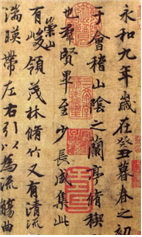 永和九年歲在癸丑暮春之初
于會稽山陰之蘭亭脩稧
也羣賢畢至少長咸集此
崇山
有峻領茂林脩竹又有清流
湍暎帶左右引以為流觴曲